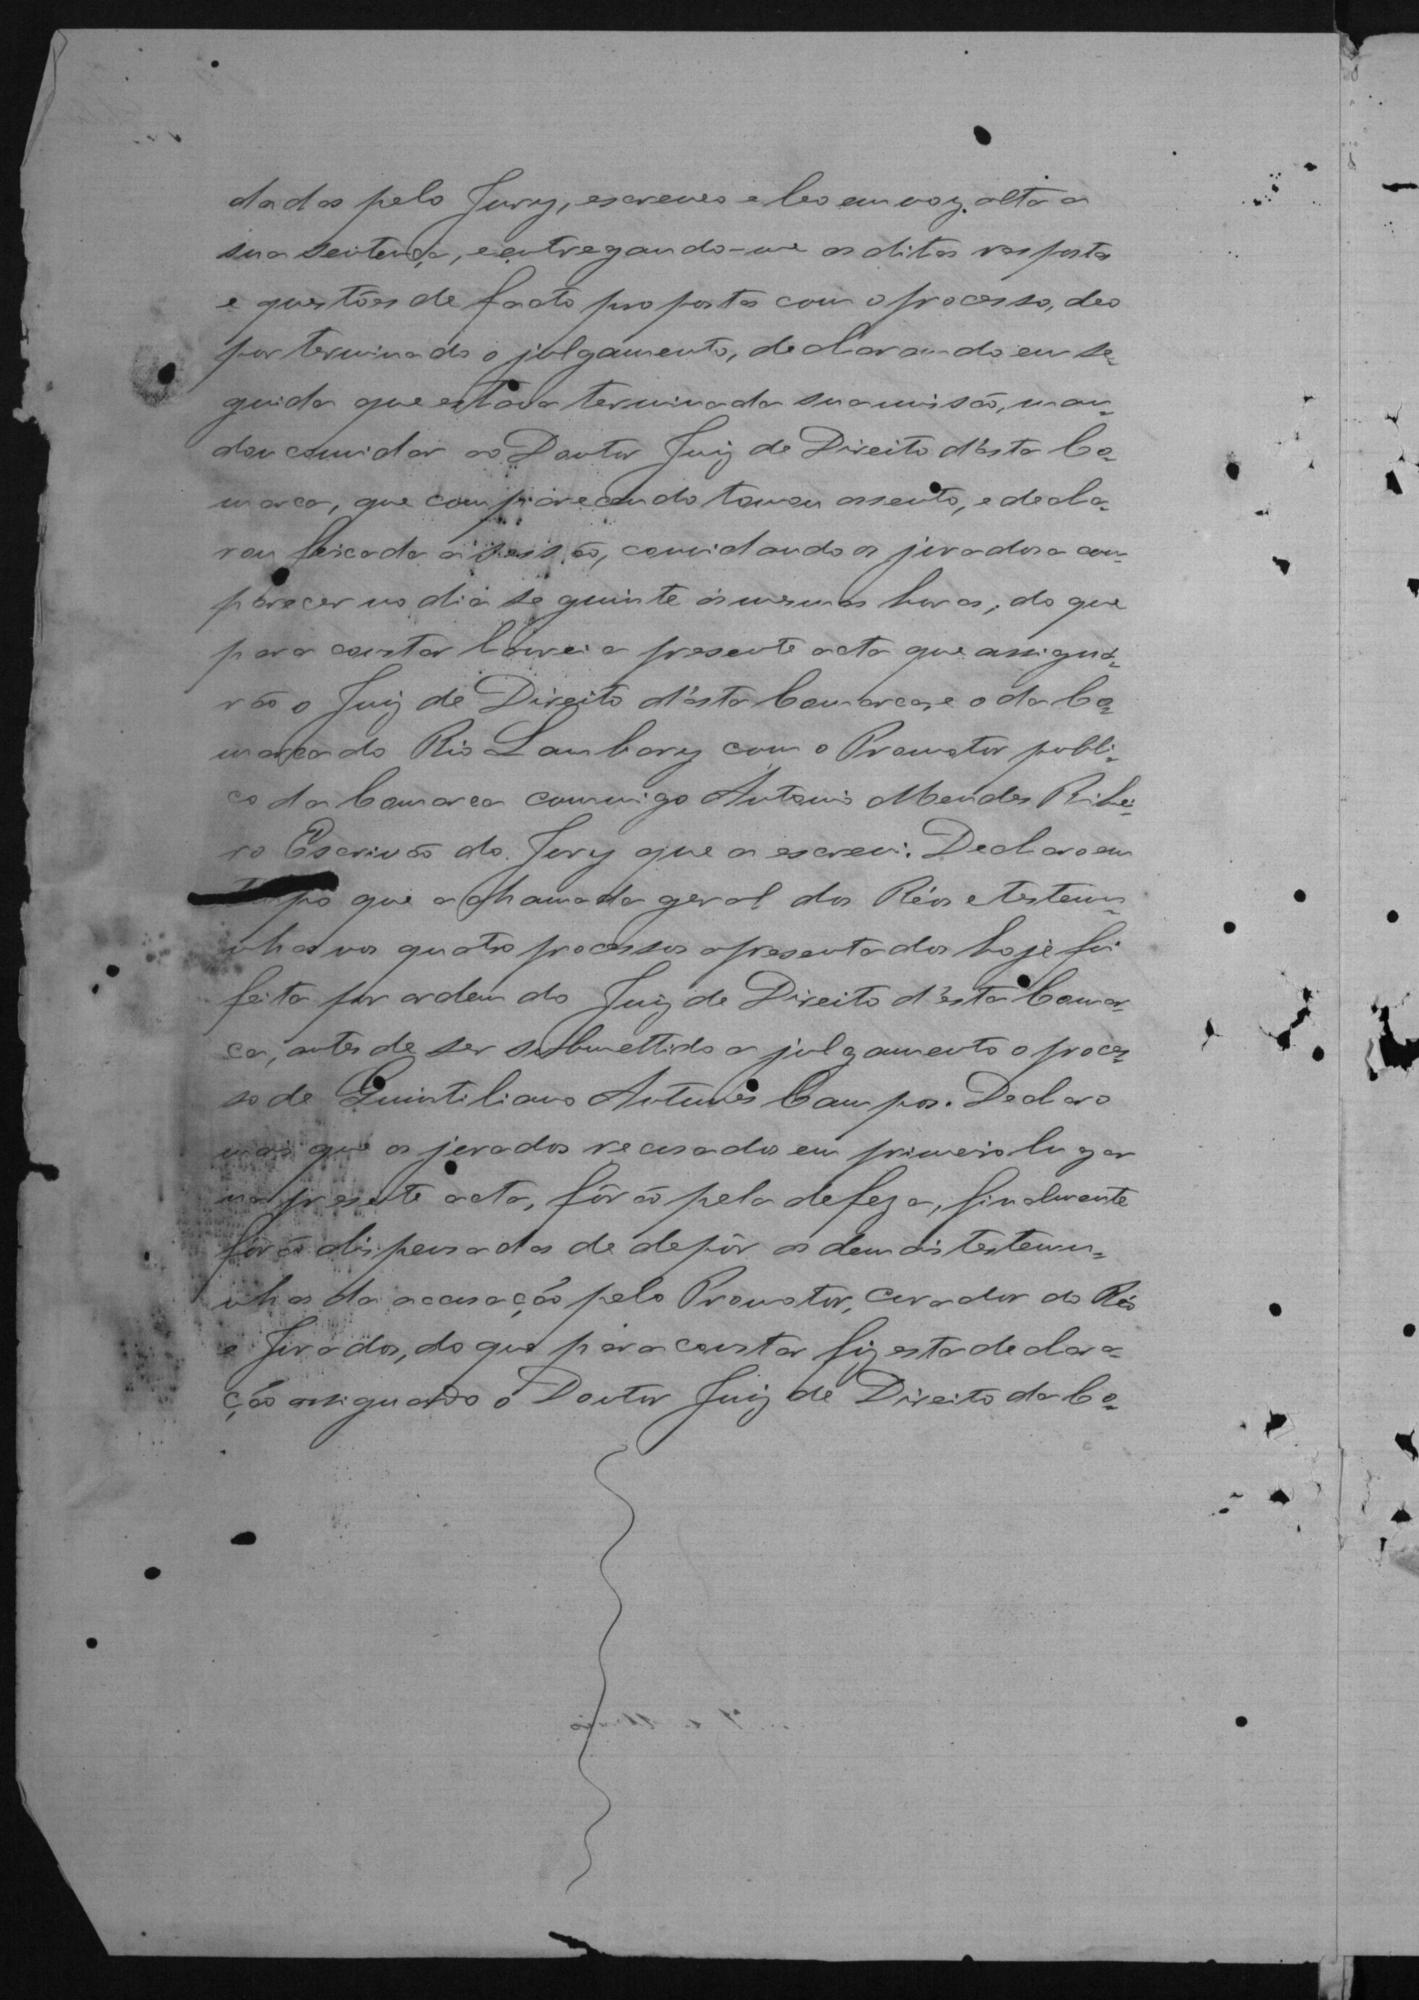 dadas pelo Jury, escreveo e leo em voz alta a
sua sentença, e entregando-me as ditas resposta
e questões de facto propostas com o processo, deo
por terminado o julgamento, declarando em se-
guida que estava terminada sua missão, man-
dou convidar ao Doutor Juiz de Direito d'ésta Co-
marca, que comparecendo tomou assento, e decla-
rou feixada a sessão, convidando os jurados a com-
parecer no dia seguinte ás mesmas horas, do que
para constar lavrei a presente acta que assigna-
rão o Juiz de Direito d'ésta Comarca, e o da Co-
marca do Rio Lambary com o Promotor publi-
co da Comarca commigo Antonio Mendes Ribei-
ro Escrivão do Jury que a escrevi. Declaro em
tempo que a chamada geral dos Réos e testem-
unhas nos quatro processos apresentados hoje foi
feita por ordem do Juiz de Direito d'ésta Comar-
ca, antes de ser submettido a julgamento o proces-
so de Quintiliano Antunes Campos. Declaro
mais que os jurados recusados em primeiro lugar
na presente acta, fôrão pela defeza, finalmente
fôrão dispensadas de depôr as demais testemu-
nhas da accusação pelo Promotor, Curador do Réo
e Jurados, do que para constar fiz esta declara-
ção assignando o Doutor Juiz de Direito da Co-